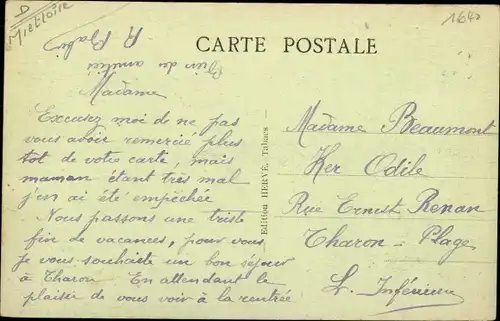 CARTE POSTALE
1640
Madame
Excusez moi de ne pas
vous avoir remercié plus
tot de votre carte, mais
maman étant très mal
j'en ai été empechée
Nous passons une triste
fin de vacances, pour vous
je vous souhaite un bon séjour
à Tharon. En attendant le
plaisir de vous voir à la rentrée
Bien des amitiés
Edition HERVÉ, Tabacs
Madame Beaumont
Ker Odile
Rue Ernest Renan
Tharon-Plage
L. Inférieure